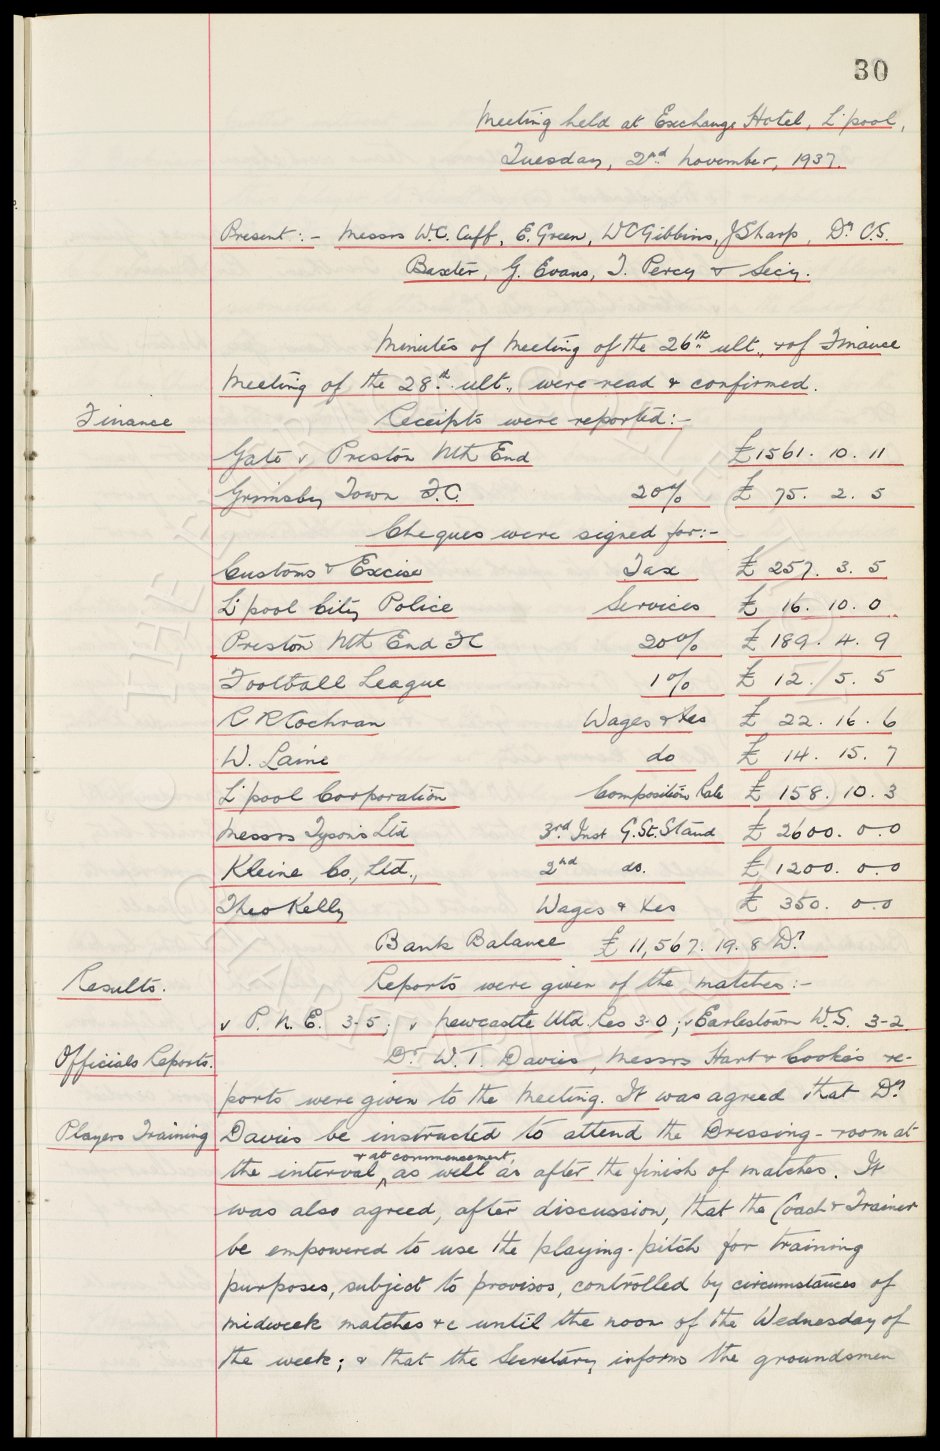 30
Meeting held at Exchange Hotel, L'pool,
Tuesday, 2nd November, 1937.
Present:- Messrs W.C. Cuff, E. Green, W C Gibbins, J Sharp, Dr C.S.
Baxter, G. Evans, T. Percy & Secy.
Minutes of Meeting of the 26th ult., & of Finance
Meeting of the 28th ult., were read & confirmed.
Finance Receipts were reported:-
Gate v Preston Nth End £1561. 10. 11
Grimsby Town F.C. 20% £ 75. 2. 5
Cheques were signed for:-
Customs & Excise Tax £ 257. 3. 5
L'pool City Police Services £ 16. 10. 0
Preston Nth End FC 20% £ 189. 4. 9
Football League 1% £ 12. 5. 5
C R Cochran Wages & Xes £ 22. 16. 6
W. Laine do £ 14. 15. 7
L'pool Corporation Composition Rate £ 158. 10. 3
Messrs Tysons Ltd 3rd Inst G. St. Stand £ 2600. 0. 0
Kleine Co., Ltd., 2nd do. £ 1200. 0. 0
Theo Kelly Wages & Xes £ 350. 0. 0
Bank Balance £ 11,567. 19. 8 Dr
Results. Reports were given of the matches:-
v P. N. E. 3-5; v Newcastle Utd Res 3-0; v Earlestown W.S. 3-2
Officials Reports. Dr W. T. Davies, Messrs Hart & Cooke's re-
ports were given to the Meeting. It was agreed that Dr
Players Training Davies be instructed to attend the Dressing-room at
& at commencement,
the interval, as well as after the finish of matches. It
was also agreed, after discussion, that the Coach & Trainer
be empowered to use the playing-pitch for training
purposes, subject to provisos, controlled by circumstances of
midweek matches &c until the noon of the Wednesday of
the week; & that the Secretary informs the groundsmen